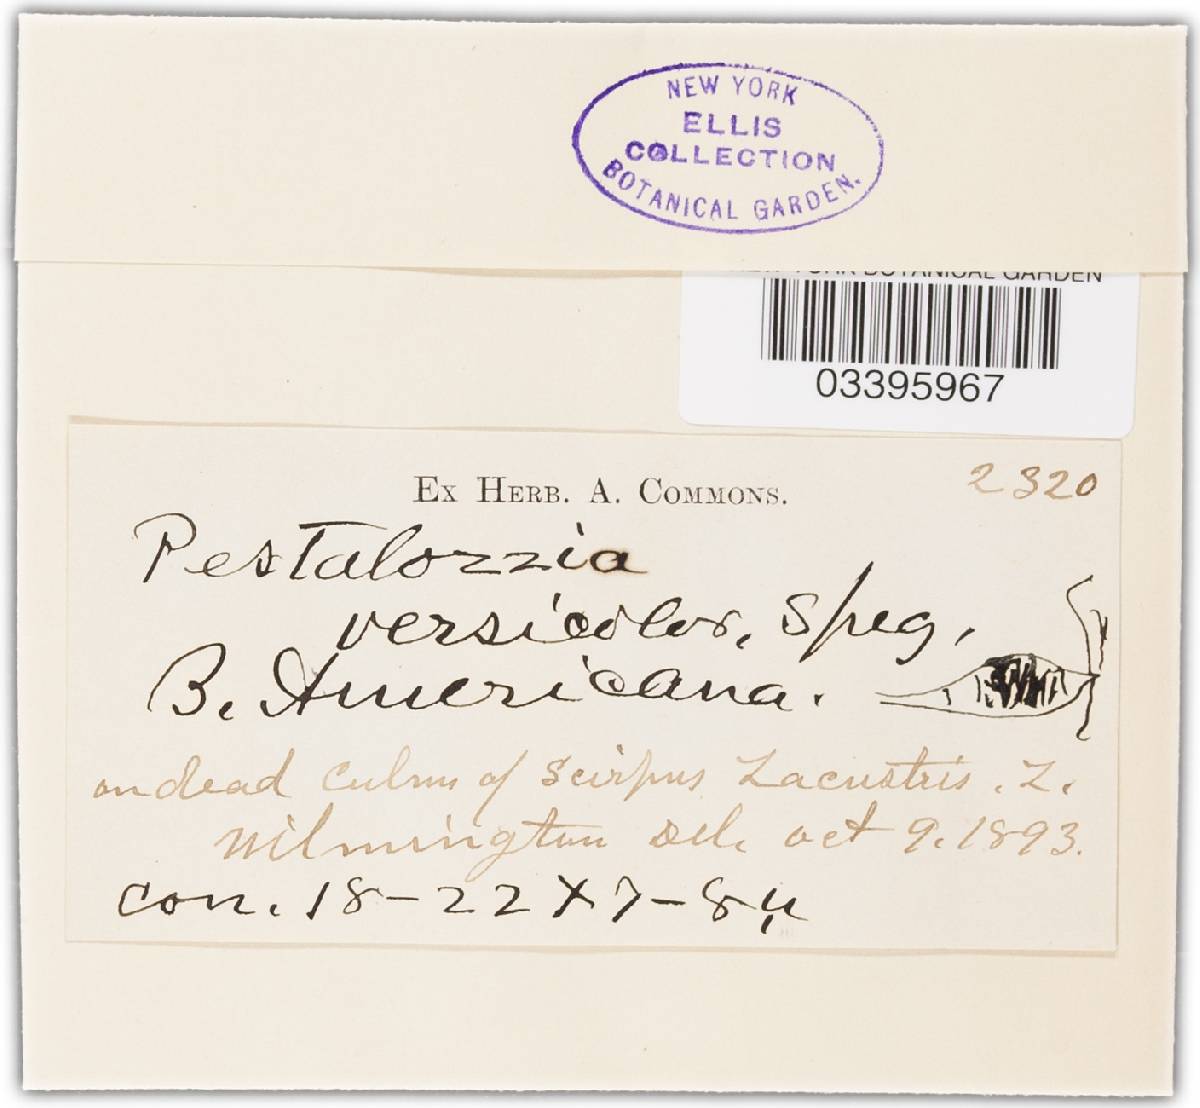 NEW YORK
ELLIS
COLLECTION
BOTANICAL GARDEN.
NEW YORK BOTANICAL GARDEN
03395967
EX HERB. A. COMMONS.
2320
Pestalozzia
versicolor, Speg,
B. Americana.
on dead culms of Scirpus Lacustris. L.
Wilmington Del. oct 9. 1893.
con. 18-22 X 7-8 µ